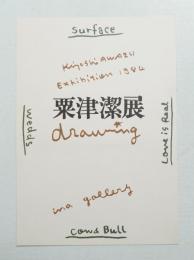 surface
Kiyoshi AWAZU
Exhibition 1984
粟津潔展
drawing
in a gallery
Love is Real
Cow & Bull